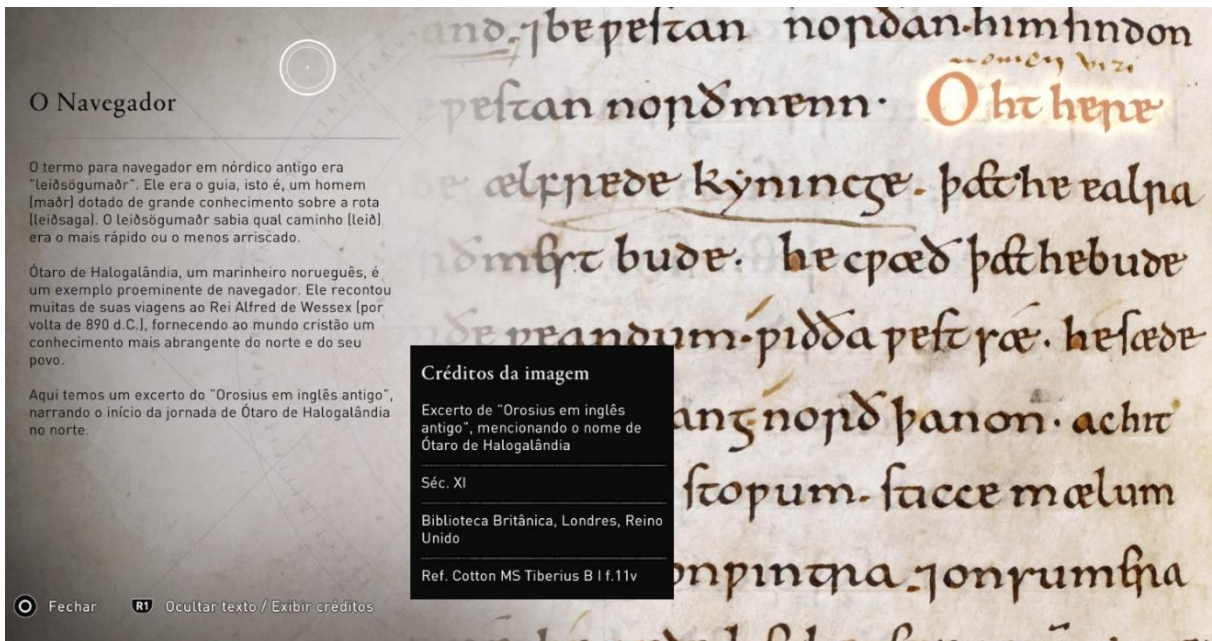 O Navegador
O termo para navegador em nórdico antigo era
"leiðsögumaðr". Ele era o guia, isto é, um homem
(maðr) dotado de grande conhecimento sobre a rota
(leiðsaga). O leiðsögumaðr sabia qual caminho (leið)
era o mais rápido ou o menos arriscado.
Ótaro de Halogalândia, um marinheiro norueguês, é
um exemplo proeminente de navegador. Ele recontou
muitas de suas viagens ao Rei Alfred de Wessex (por
volta de 890 d.C.), fornecendo ao mundo cristão um
conhecimento mais abrangente do norte e do seu
povo.
Aqui temos um excerto do "Orosius em inglês antigo",
narrando o início da jornada de Ótaro de Halogalândia
no norte.
Fechar R1 Ocultar texto / Exibir créditos
Créditos da imagem
Excerto de "Orosius em inglês
antigo", mencionando o nome de
Ótaro de Halogalândia
Séc. XI
Biblioteca Britânica, Londres, Reino
Unido
Ref. Cotton MS Tiberius B I f.11v
⁊ be ƿestan norðan. him sindon
ƿestan norðmenn. Ohthere
ælfrede kynincge. þæt he ealra
bude. he cƿæð þæt he bude
ƿeardum. ƿiðða ƿest sæ. he sæde
norð þanon. ac hit
stopum. sticce mælum
onƿintra. ⁊ on sumera